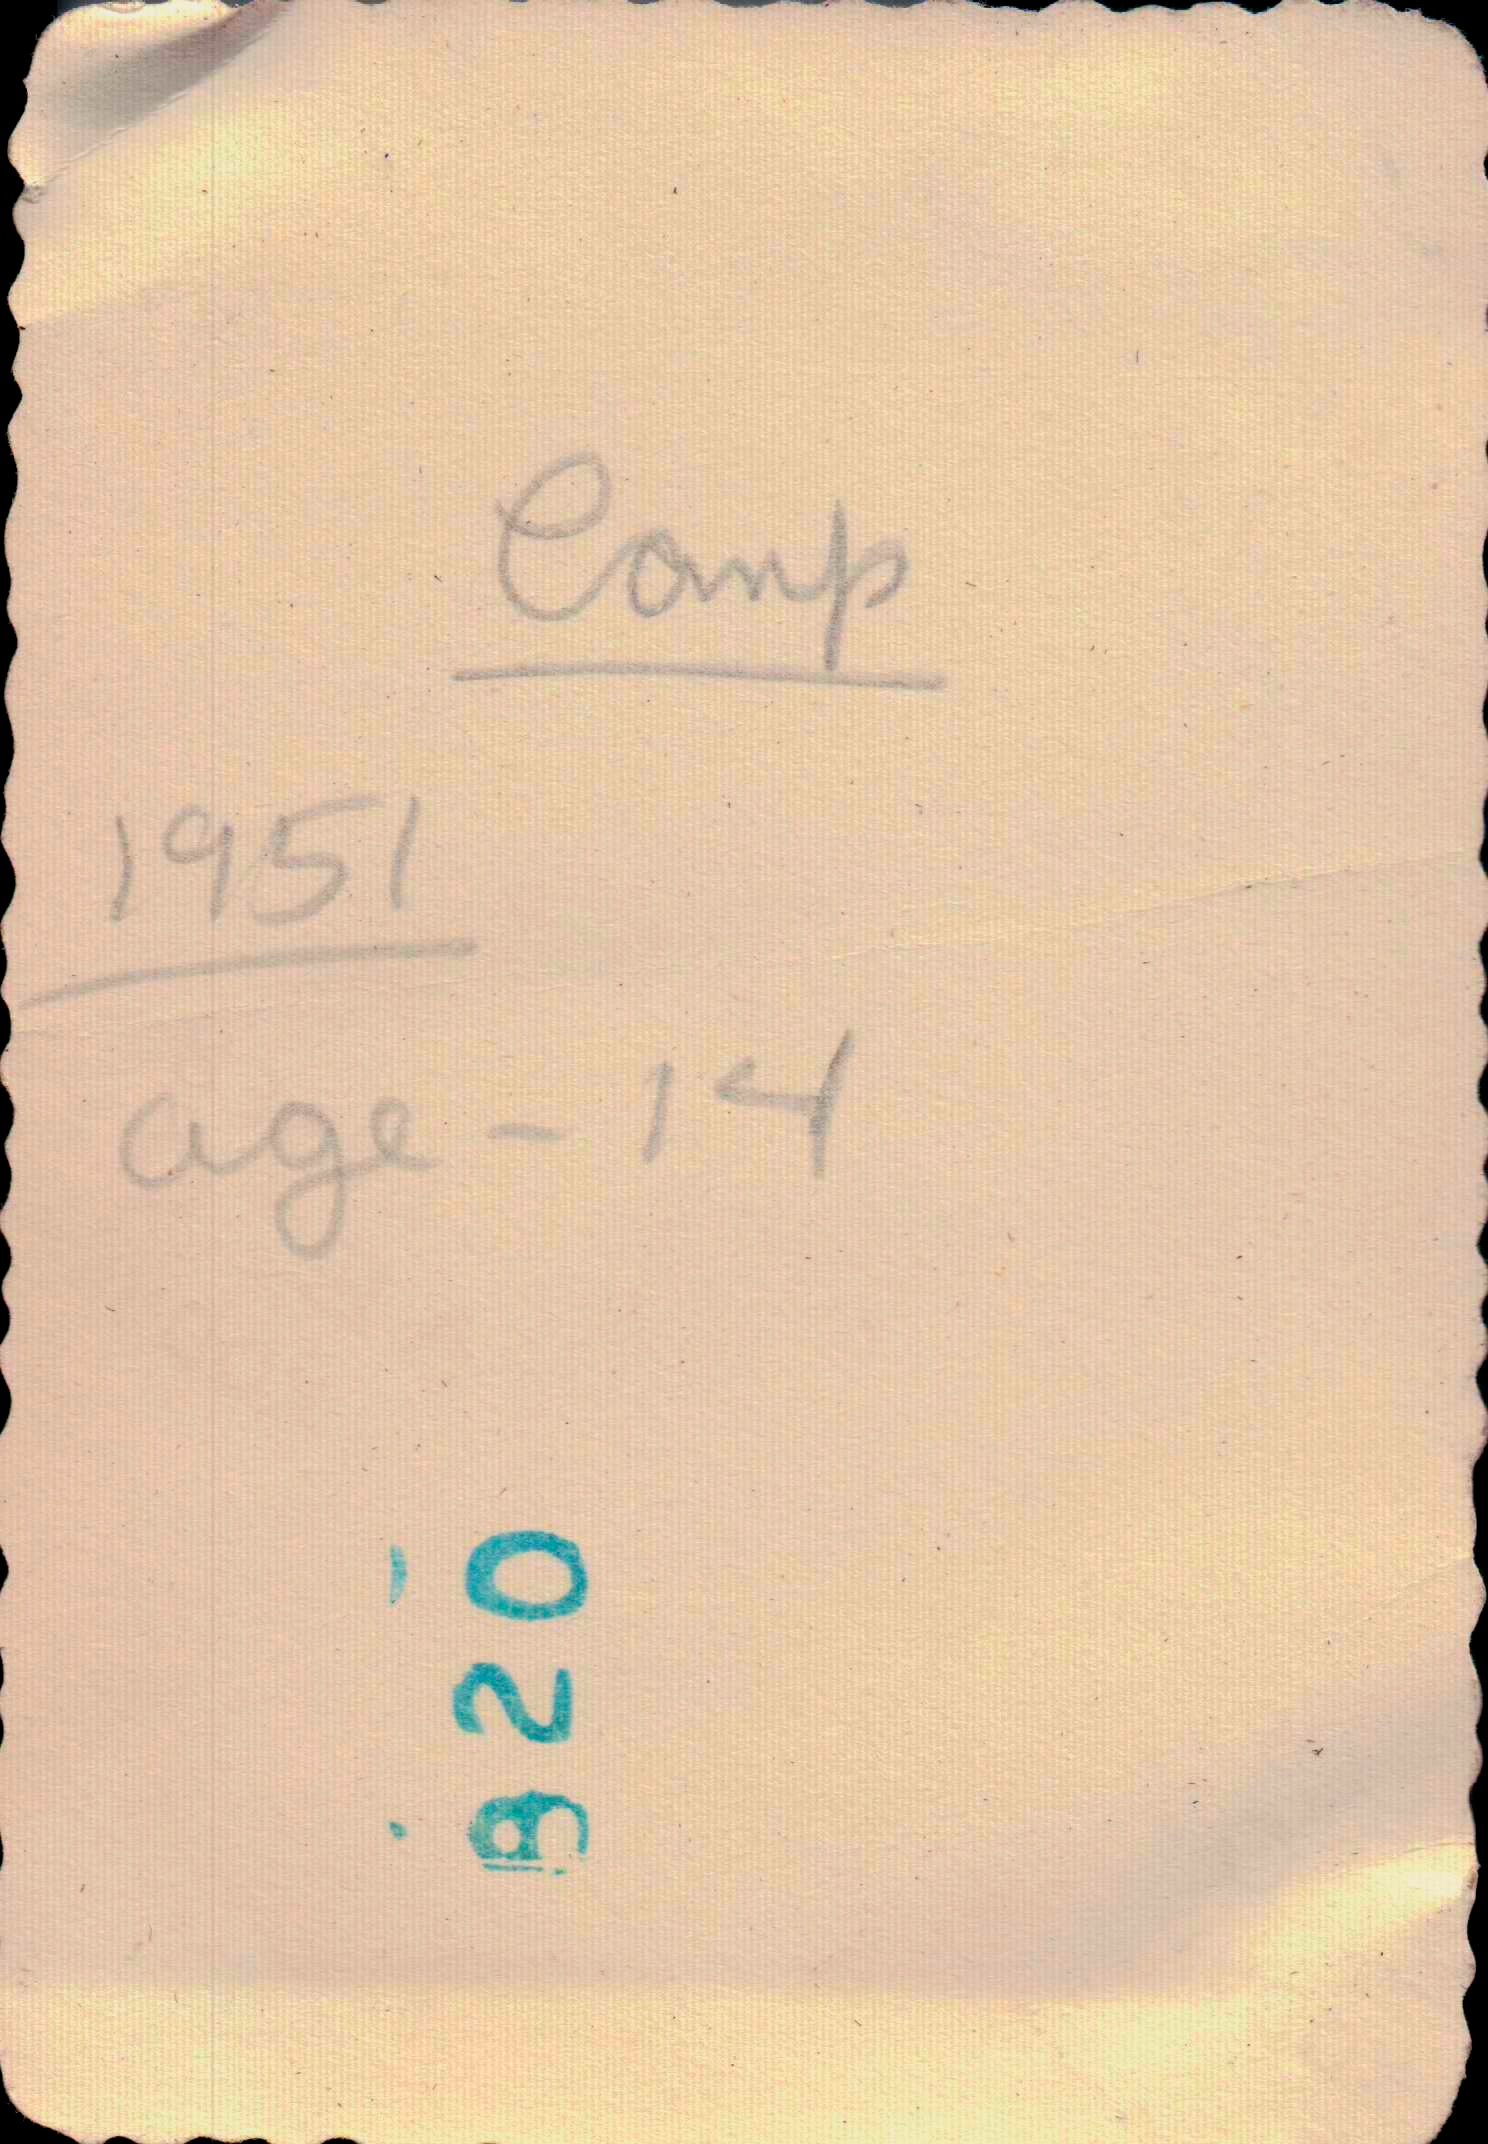 Camp
1951
age - 14
920